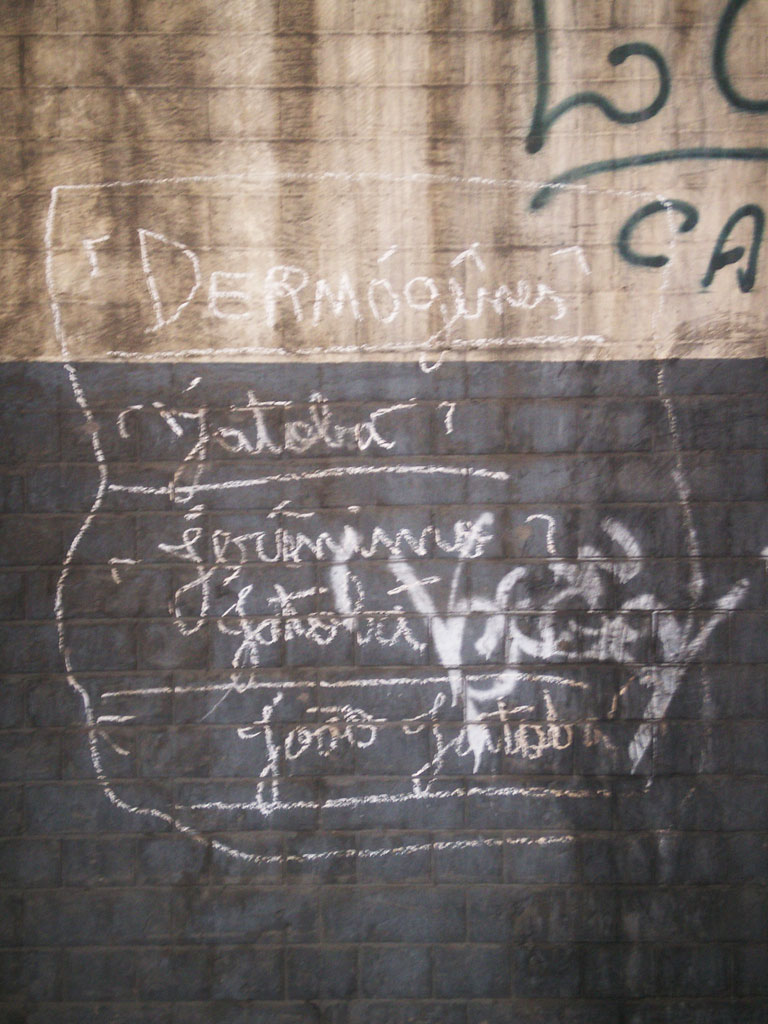 CA
"DERMÓgênes"
"Jatobá"
"Gerônimo"
Jatobá
João Jatobá